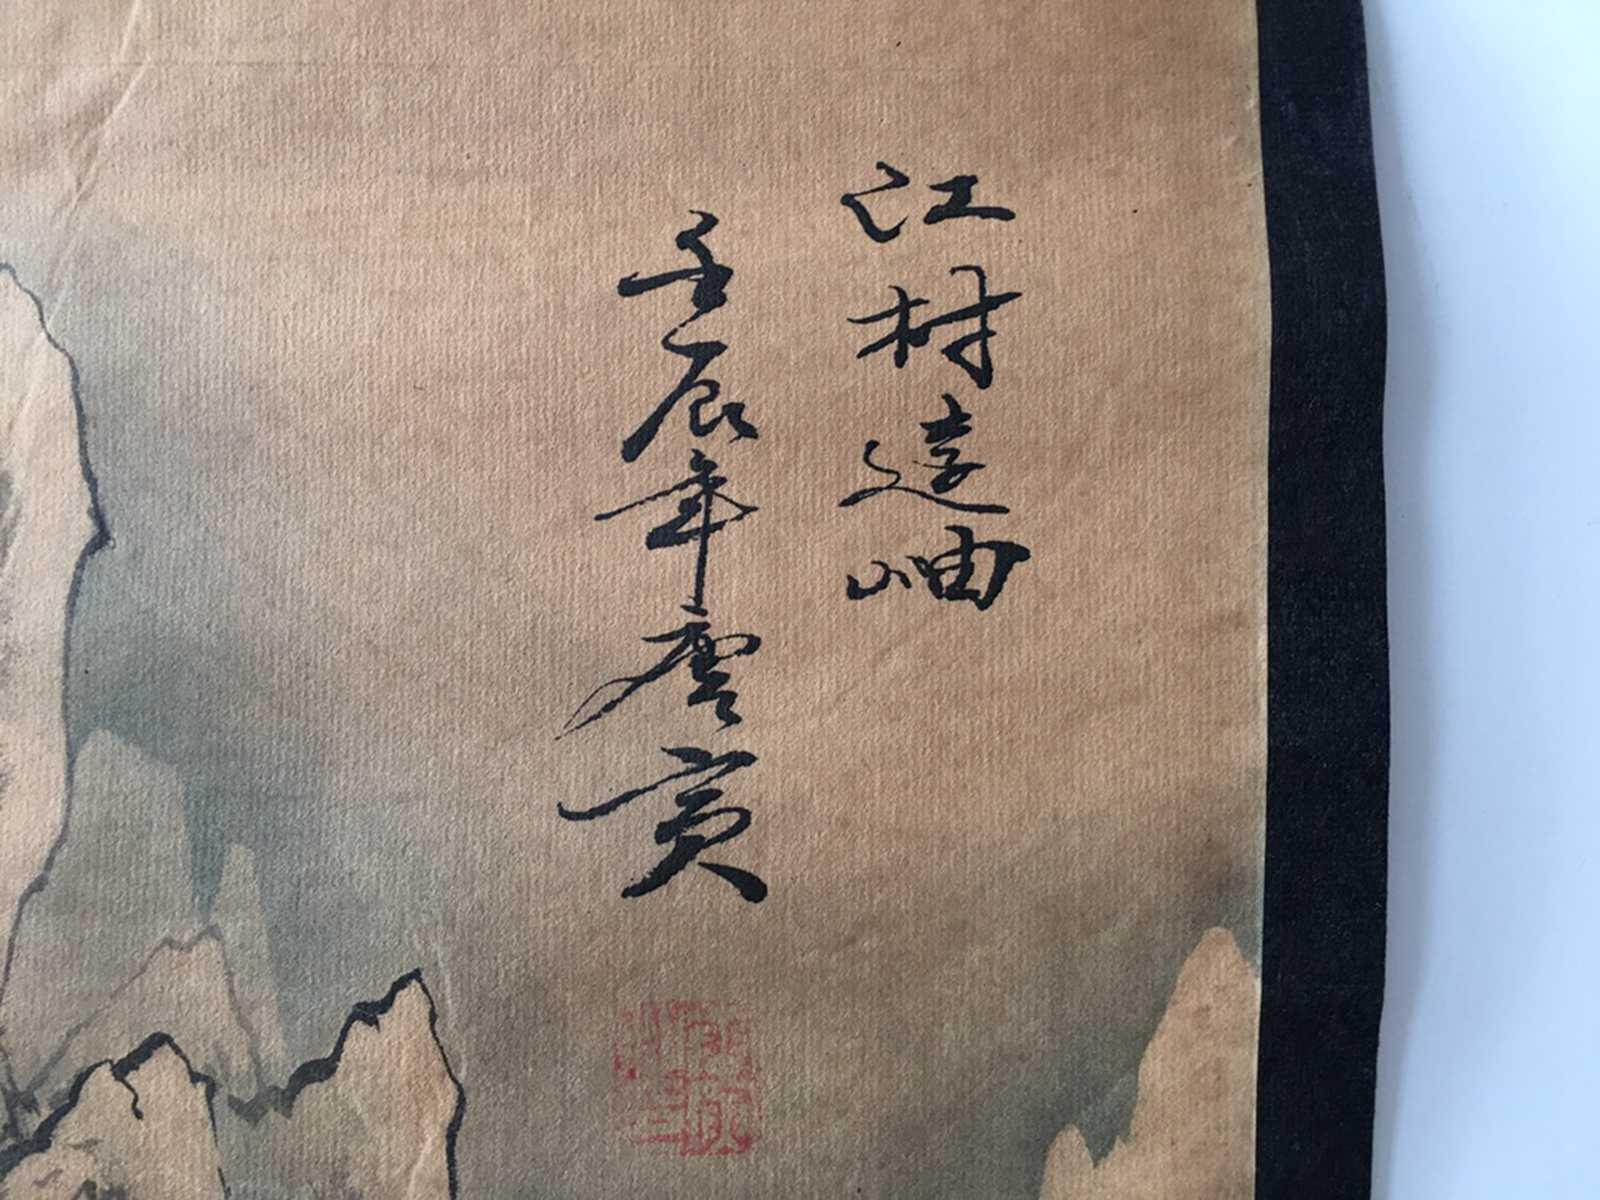 江村遠岫
壬辰年唐寅